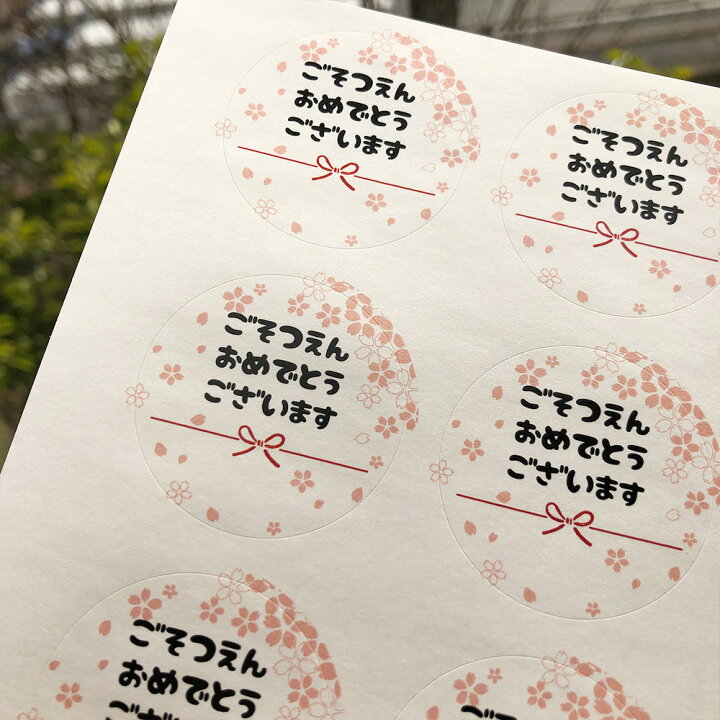 ごそつえん
おめでとう
ございます
ごそつえん
おめでとう
ございます
ごそつえん
おめでとう
ございます
ごそつえん
おめでとう
ございます
ごそつえん
おめでとう
ございます
ごそつえん